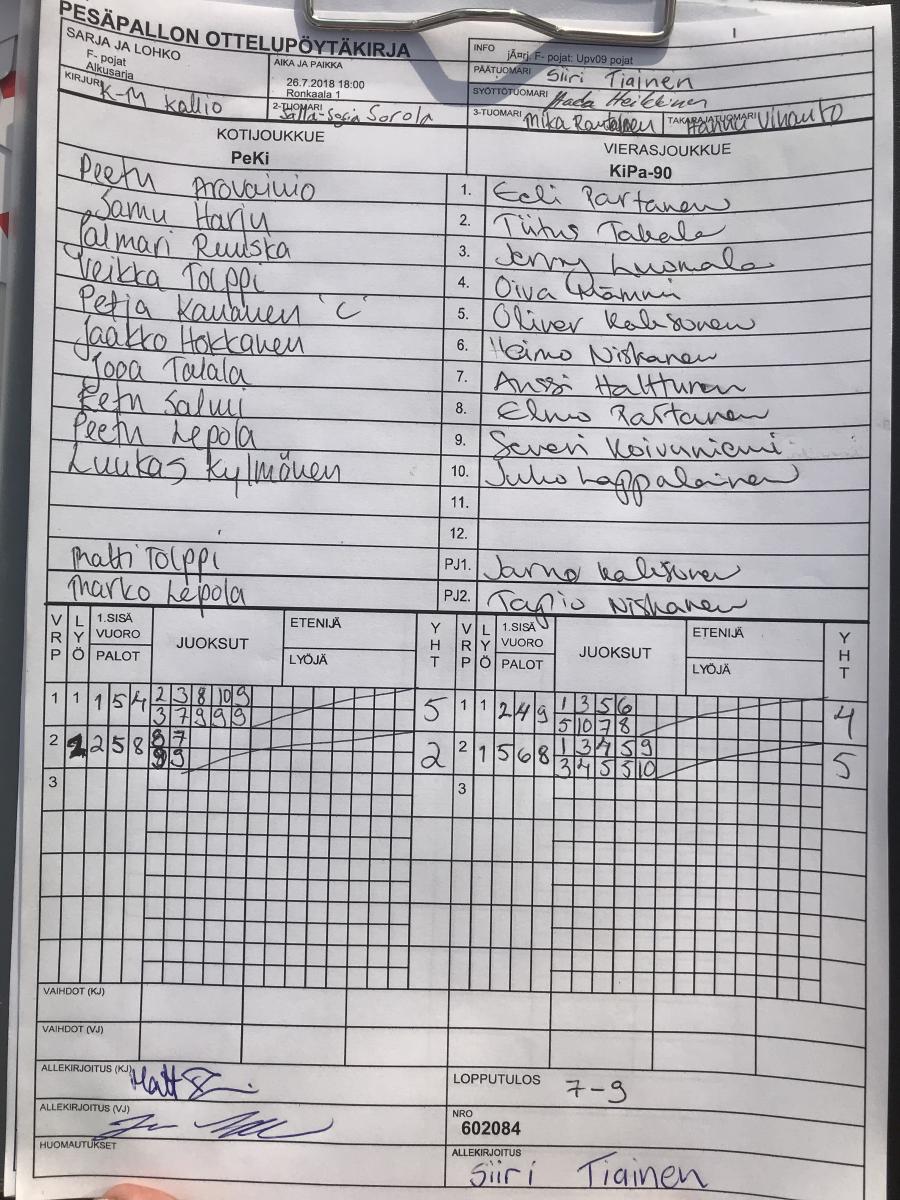 PESÄPALLON OTTELUPÖYTÄKIRJA
SARJA JA LOHKO
F- pojat
Alkusarja
AIKA JA PAIKKA
26.7.2018 18:00
Ronkaala 1
INFO
jÃ¤rj. F- pojat: Upv09 pojat
PÄÄTUOMARI Siiri Tiainen
SYÖTTÖTUOMARI Heikkinen
KIRJURI K-M Kallio
2-TUOMARI Salla-Sofia Sorola
3-TUOMARI Mika Rautalinen TAKARAJATUOMARI Hannu
KOTIJOUKKUE VIERASJOUKKUE
PeKi KiPa-90
Peetu Arovainio 1. Eeli Partanen
Samu Harju 2. Tiitus Takala
Jalmari Ruuska 3. Jenny Luomala
Veikka Tolppi 4. Oiva Kämmi
Petja Kananen 'C' 5. Oliver Kaksonen
Jaakko Hokkanen 6. Heimo Niskanen
Jooa Talala 7. Anssi Halttunen
Eetu Salmi 8. Elmo Rastanen
Peetu Lepola 9. Severi Koivuniemi
Luukas Kylmänen 10. Juho Lappalainen
11.
12.
Matti Tolppi PJ1. Jarno Kaksonen
Marko Lepola PJ2. Tapio Niskanen
VRP LYÖ 1.SISÄ VUORO PALOT JUOKSUT ETENIJÄ LYÖJÄ YHT VRP LYÖ 1.SISÄ VUORO PALOT JUOKSUT ETENIJÄ LYÖJÄ YHT
1 1 1 5 4 2 3 8 10 9 5 1 1 2 4 9 1 3 5 6 4
3 7 9 9 9 5 10 7 8
2 2 2 5 8 8 7 2 2 1 5 6 8 1 3 4 5 9 5
8 9 3 4 5 5 10
3 3
VAIHDOT (KJ)
VAIHDOT (VJ)
ALLEKIRJOITUS (KJ) LOPPUTULOS 7-9
ALLEKIRJOITUS (VJ) NRO
602084
HUOMAUTUKSET ALLEKIRJOITUS
Siiri Tiainen